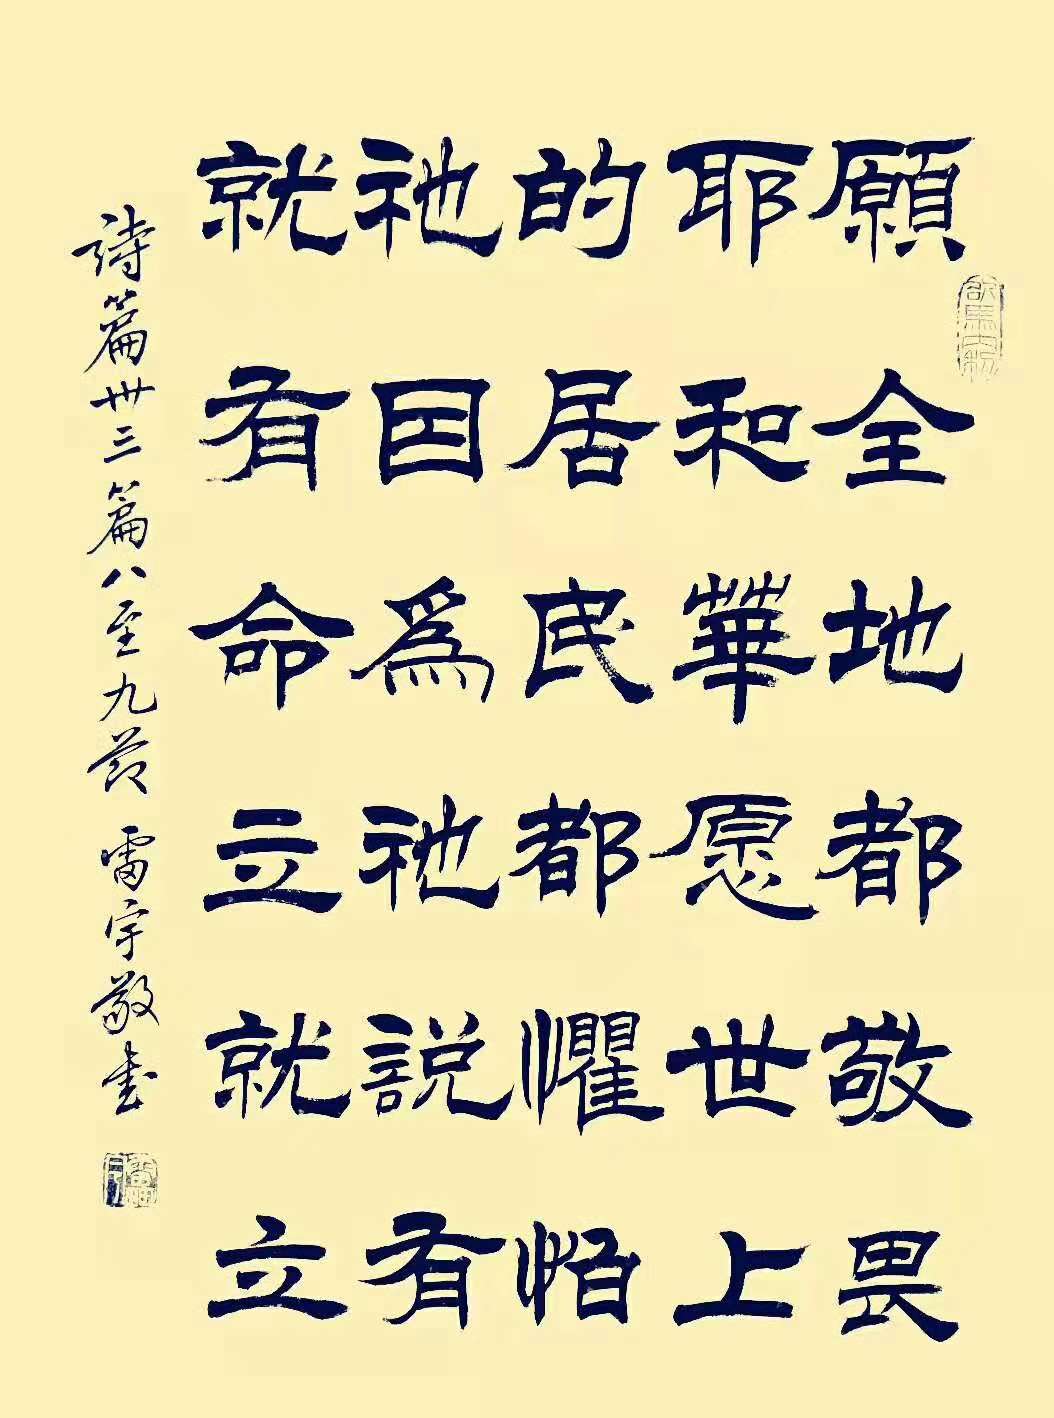 願全地都敬畏
耶和華愿世上
的居民都懼怕
祂因爲祂説有
就有命立就立
詩篇卅三篇八至九節 雷宇敬書